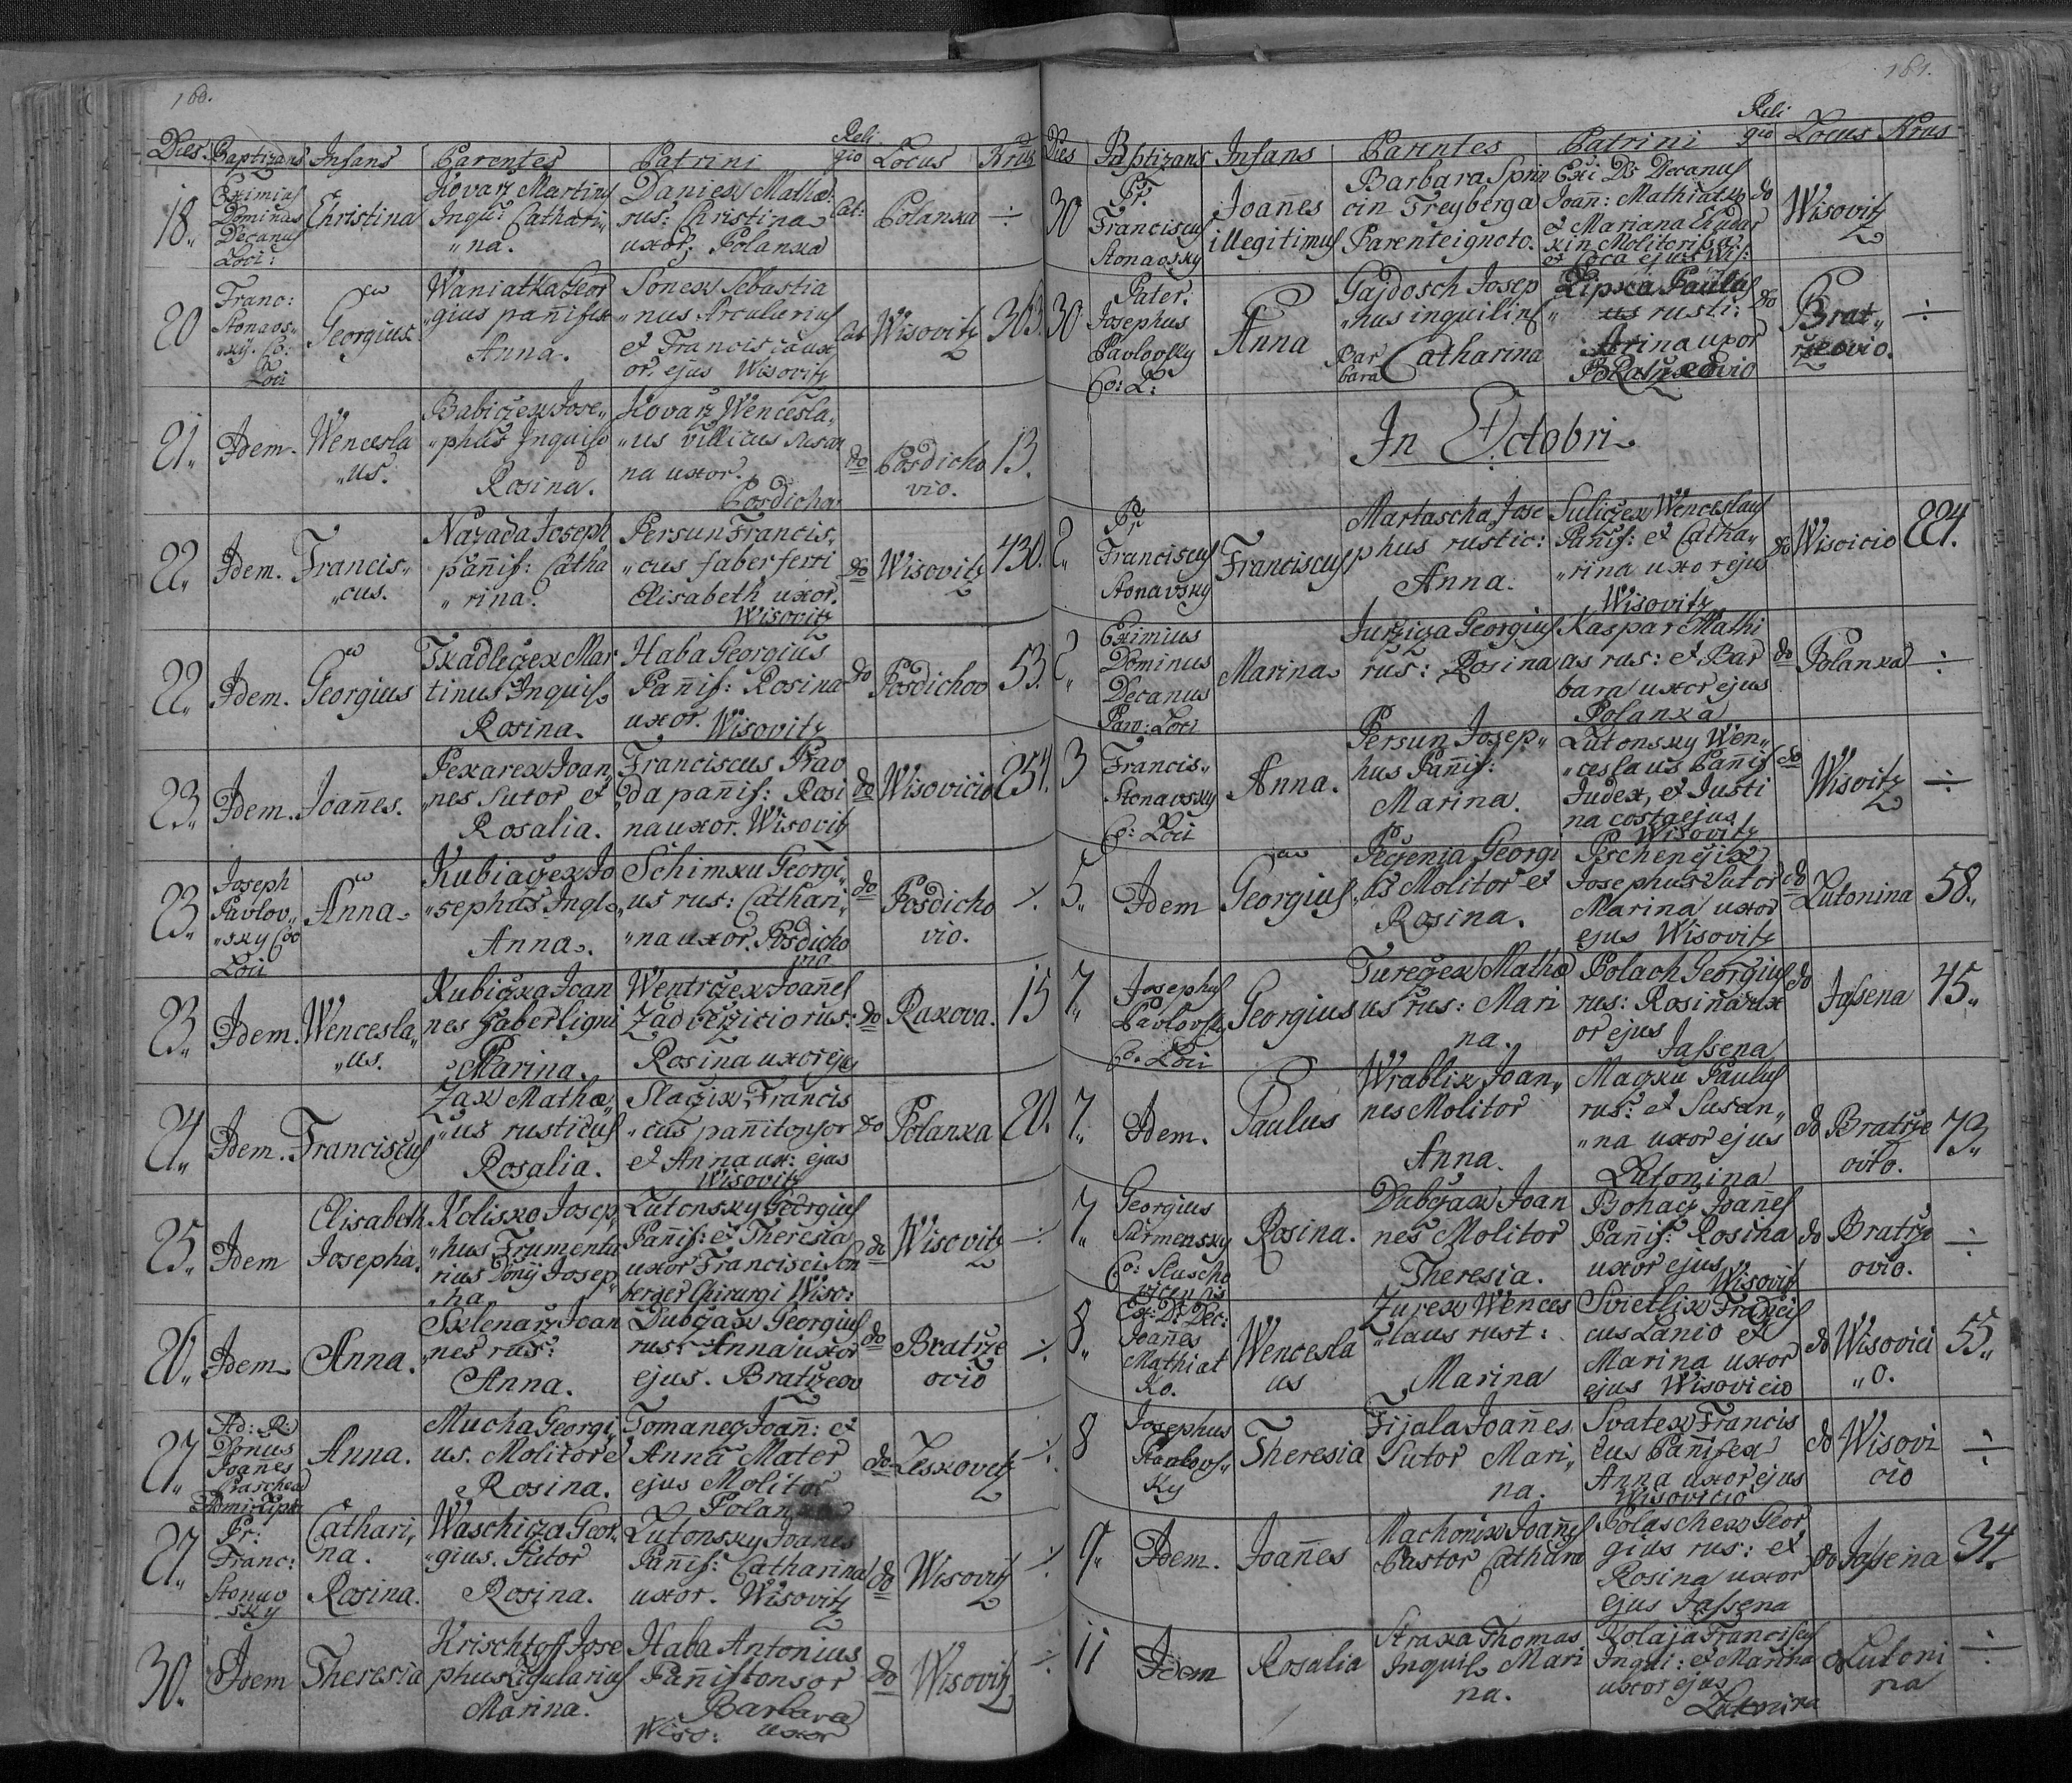 160.
Dies. Baptizans Infans Parentes Patrini Religio Locus Nrus
18. Eximius Dominus Decanus Loci: Christina Kovarz Martinus Inqu: Catharina. Daniex Mathæ: rus: Christina uxor, Polanka Cat: Polanka ÷
20 Franc: Stonavsky. Co: Loci Georgius Waniatka Georgius pañifex Anna. Sonex Sebastianus Arcularius et Francisca uxor ejus Wisovitz Cat Wisovitz 303.
21. Idem. Wenceslaus. Babiczex Josephus Inquiso Rosina. Kovarz Wenceslaus villicus Susanna uxor. Posdicho do Posdichovio. 13.
22. Idem. Franciscus. Nazada Joseph pañif: Catharina. Persun Franciscus faber ferri Elisabeth uxor. Wisovitz do Wisovitz 430.
22. Idem. Georgius Tkadleczex Martinus Inquis Rosina. Haba Georgius Pañif: Rosina uxor. Wisovitz do Posdichov 53.
23. Idem. Joañes. Pexarex Joannes Sutor et Rosalia. Franciscus Prav da panif: Rosina uxor. Wisovitz do Wisovicio 254.
23. Joseph Pavlovsky Coo Loci Anna Kubiaczex Josephus Ingl Anna. Schimxu Georgius rus: Catharina uxor. Posdichovio do Posdichovio. ÷
23. Idem. Wenceslaus. Kubiczxa Joannes Faber ligni Marina. Wentrczex Joañes Zadverzicio rus: Rosina uxor ejus do Raxova. 15
24. Idem. Franciscus Zax Mathæus rusticus Rosalia. Slaczix Franciscus pañitonsor et Anna ux: ejus Wisovitz do Polanxa 20.
25. Idem Elisabeth Josepha. Kolisxo Josephus Frumentarius Donij Josepha Lutonsky Georgius Pañif: et Theresia uxor Francisci berger Chirurgi Wiso: do Wisovitz ÷
26. Idem Anna. Sklenarz Joannes rus: Anna. Dubczax Georgius rus: Anna uxor ejus. Bratrzeov do Bratrzeovio ÷
27. Ad: R: Donus Joañes Anna. Mucha Georgius. Molitor e Rosina. Tomanecz Joañ: et Anna Mater ejus Molitor Polanxa do Lesxovetz ÷
27. Pr: Franc: Stonavsky Catharina. Rosina. Waschicza Georgius. Sutor Rosina. Lutonsky Joanes Pañif: Catharina uxor. Wisovitz do Wisovitz ÷
30. Idem Theresia Krischtoff Josephus Ligularius Marina. Haba Antonius Pañistonsor Barbara Wiso: uxor do Wisovitz ÷
161.
Dies Baptizans Infans Parentes Patrini Religio Locus Nrus
30 Pr. Franciscus Stonavsky Joañes illegitimus Barbara Sprin cin Freyberga Parente ignoto. Exi: D: Decanus Joañ: Mathiatko et Mariana Chadar xin Molitorissa ejus Wis: do Wisovitz
30 Pater. Josephus Pavlovsky Co: L: Anna Gajdosch Josephus inquilinus Barbara Catharina Lipxa Paulus rusti: Arina uxor Bratrzeovio do Bratrzeovio. ÷
In Octobri
2. Pr Franciscus Stonavsky Franciscus Martascha Josephus rustic: Anna. Suliczex Wenceslaus Pañif: et Catharina uxor ejus Wisovitz do Wisovicio 224.
2. Eximius Dominus Decanus Par: Loci Marina Jurziga Georgius rus: Rosina Kaspar Mathias rus: et Barbara uxor ejus Polanxa do Polanxa ÷
3 Francis: Stonavsky Co: Loci Anna. Persun Josephus Pañif: Marina. Lutonsky Wenceslaus Pañif Judex, et Justina costa ejus Wisovitz do Wisovitz ÷
5. Idem Georgius Peczenia Georgius Molitor et Rosina. Pschenczix Josephus Sutor Marina uxor ejus Wisovitz do Lutonina 58.
7. Josephus Pavlovsky Co. Loci Georgius Tureczex Mathæus rus: Marina. Polach Georgius rus: Rosina uxor ejus Jassena do Jassena 45.
7. Idem. Paulus Wrablix Joannes Molitor Anna. Maczxu Paulus rus: et Susanna uxor ejus Lutonina do Bratrzeovio. 73.
7. Georgius Surmensky Co: Slusch Rosina. Dubczax Joannes Molitor Theresia. Bohacz Joañes Pañif: Rosina uxor ejus Wisovitz do Bratrzeovio. ÷
8. Ex: D: Dec: Joañes Mathiatko. Wenceslaus Zurex Wenceslaus rust: Marina Svietlix Franciscus Lanio et Marina uxor ejus Wisovicio do Wisovicio. 55.
8 Josephus Pavlovsky Theresia Fijala Joañes Sutor Marina. Svatex Franciscus Pañifex Anna uxor ejus Wisovicio do Wisovicio ÷
9. Idem. Joañes Machonix Joañes Pastor Cathara Polaschex Georgius rus: et Rosina uxor ejus Jassena do Jassena 34.
11 Idem Rosalia Straxa Thomas Inquis Marina. Kolaja Franciscus Inqui: et Marina uxor ejus Lutonina do Lutonina ÷